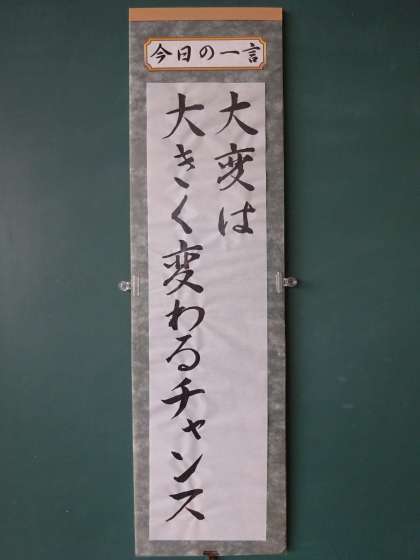 今日の一言
大変は
大きく変わるチャンス